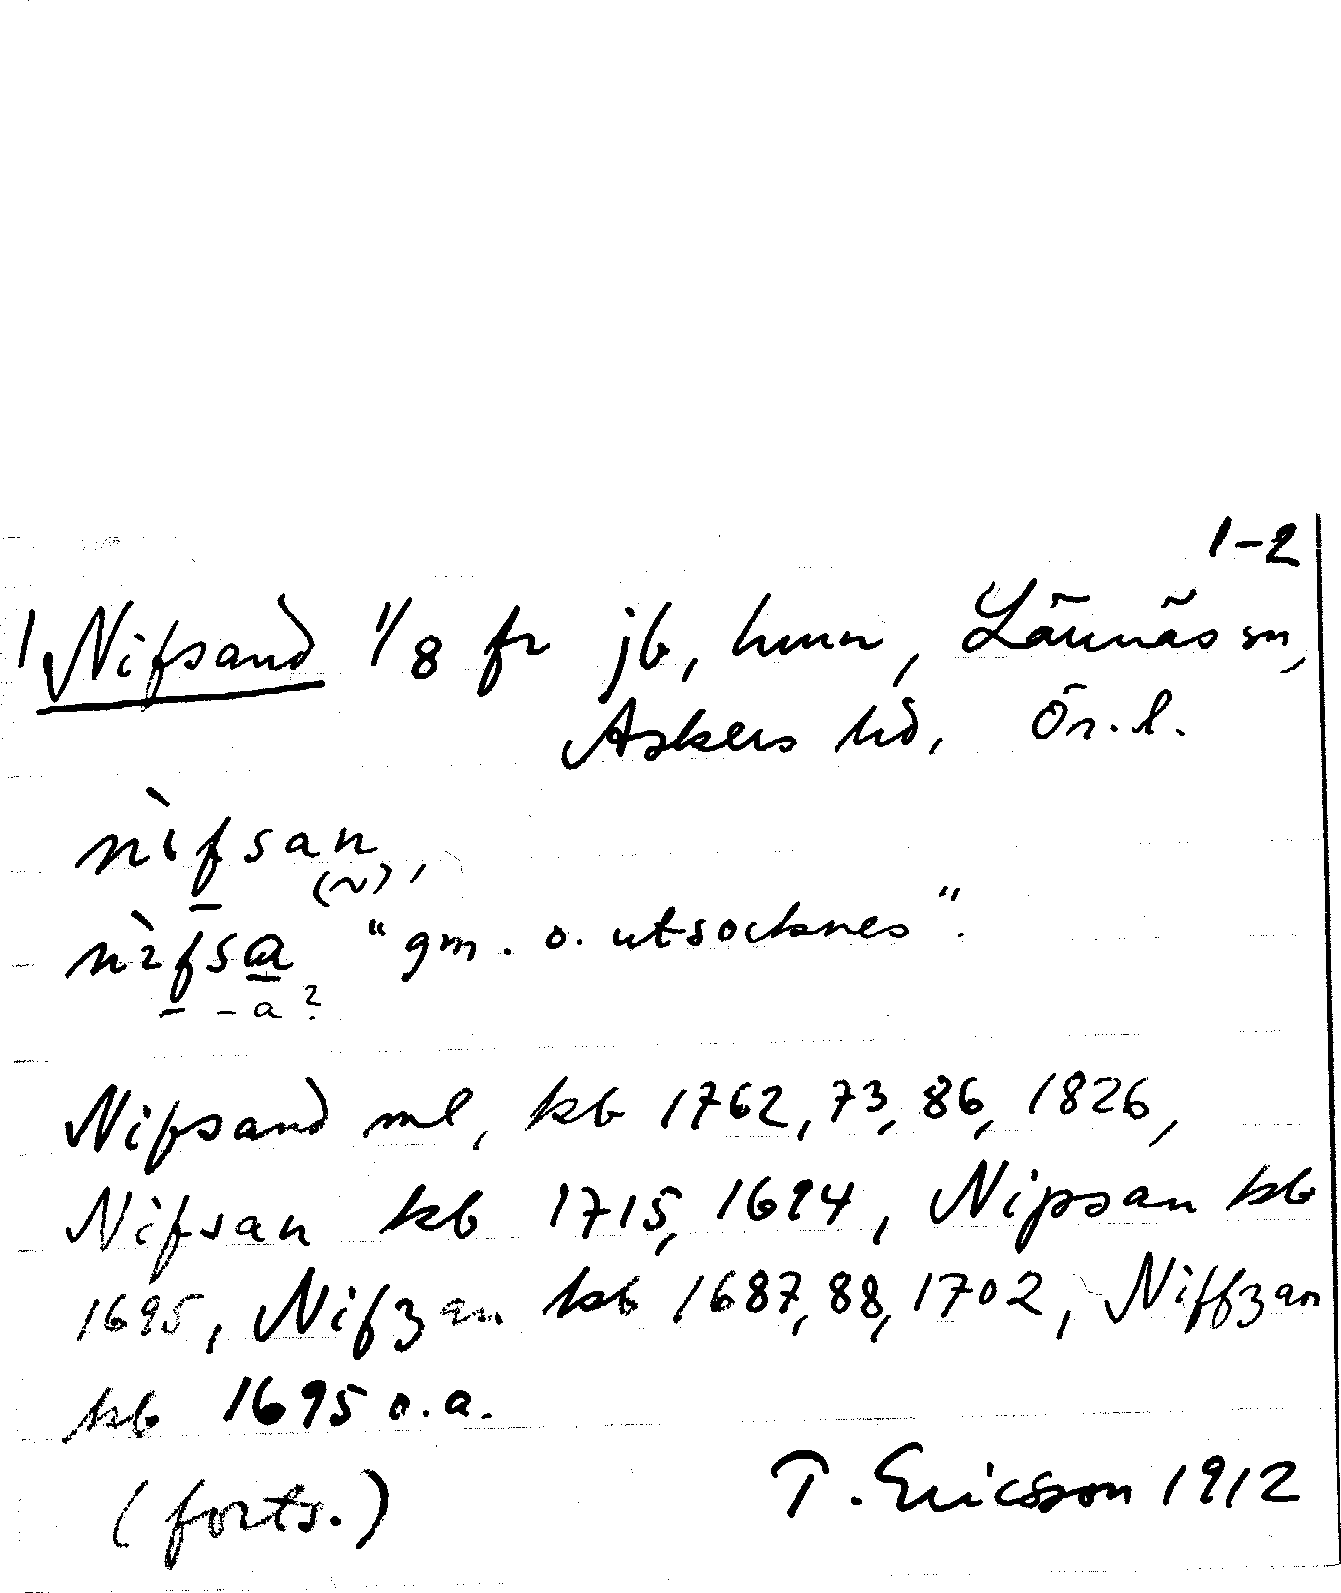 1-2
1 Nifsand 1/8 fr jb, hmn, Lännäs sn,
Askers hd, Ör.l.
nìfsan(~),
nìfsa "gm. o. utsocknes".
-a?
Nifsand ml, kb 1762, 73, 86, 1826,
Nifsan kb 1715, 1694, Nipsan kb
1695, Nifzan kb 1687, 88, 1702, Niffzan
kb 1695 o.a.
(forts.) T. Ericsson 1912